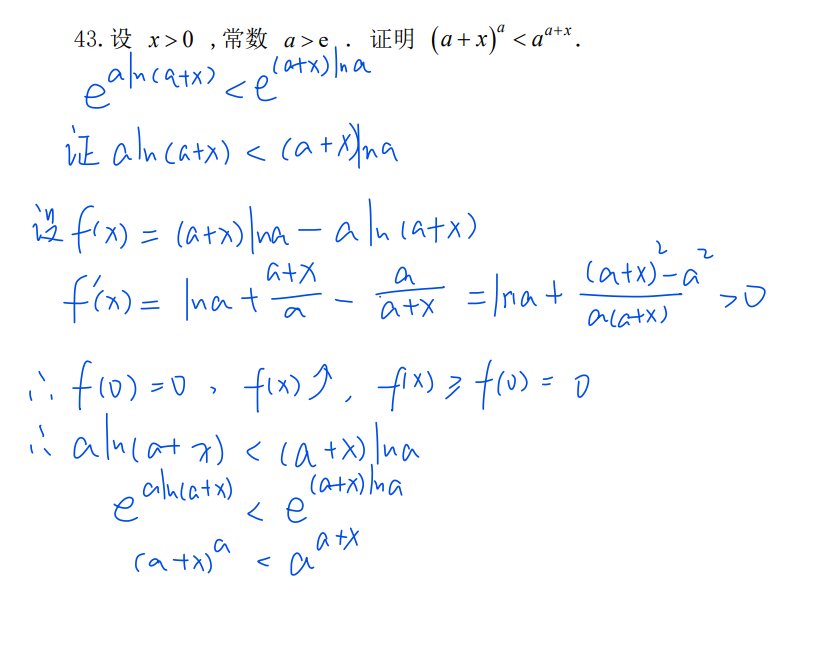 43. 设 x>0 ,常数 a>e . 证明 (a+x)^a < a^{a+x}.
e^{aln(a+x)} < e^{(a+x)lna}
证 aln(a+x) < (a+x)lna
设 f(x) = (a+x)lna - aln(a+x)
f'(x) = lna + \frac{a+x}{a} - \frac{a}{a+x} = lna + \frac{(a+x)^2-a^2}{a(a+x)} >0
∴ f(0)=0 , f(x)↗ , f(x) ≥ f(0) = 0
∴ aln(a+x) < (a+x)lna
e^{aln(a+x)} < e^{(a+x)lna}
(a+x)^a < a^{a+x}